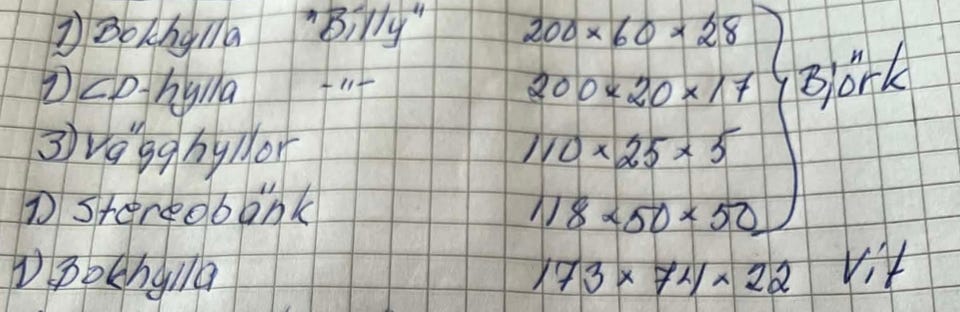 1) Bokhylla "Billy" 200 × 60 × 28
1) CD-hylla -"- 200 × 20 × 17 Björk
3) Vägghyllor 110 × 25 × 5
1) Stereobänk 118 × 50 × 50
1) Bokhylla 173 × 74 × 22 Vit